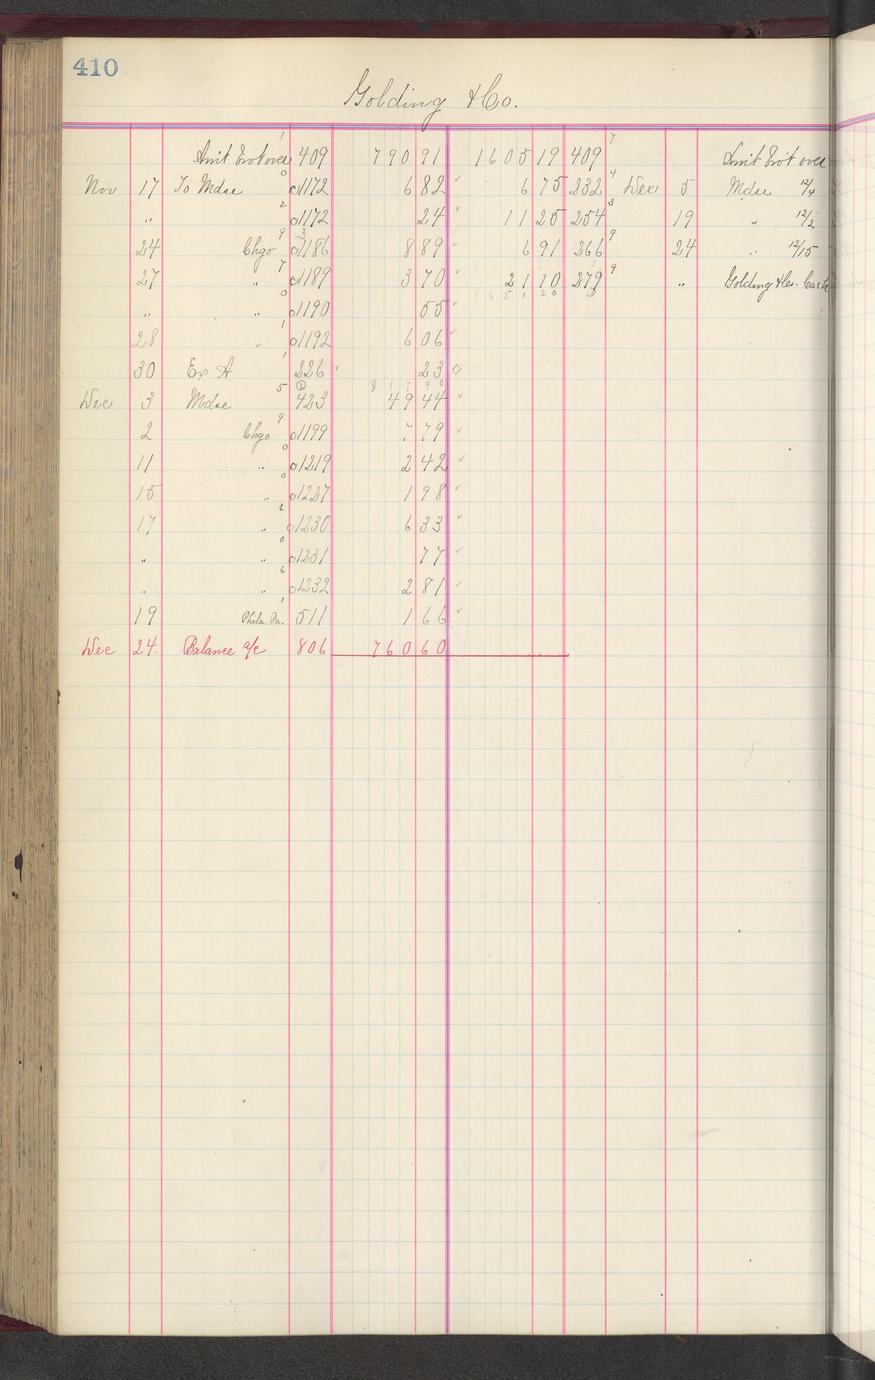 410
Golding & Co.
Amt Brot over 409 790 91 1605 19 409 Amt Brot over
Nov 17 To Mdse o1172 6 82 6 75 232 Dec 5 Mdse 12/4
" o1172 24 11 25 254 19 " 12/2
24 Chgo o1186 8 89 6 91 266 24 " 12/15
27 " o1189 3 70 21 10 279 " Golding & Co.
" " o1190 55 1651 20
28 " o1192 6 06
30 Ex A 226 23
Dec 3 Mdse 423 49 44
2 Chgo o1199 7 79
11 " o1219 2 42
15 " o1227 1 98
17 " o1230 6 33
" " o1231 77
" " o1232 2 81
19 Phila. Pa. 511 1 66
Dec 24 Balance a/c 806 760 60